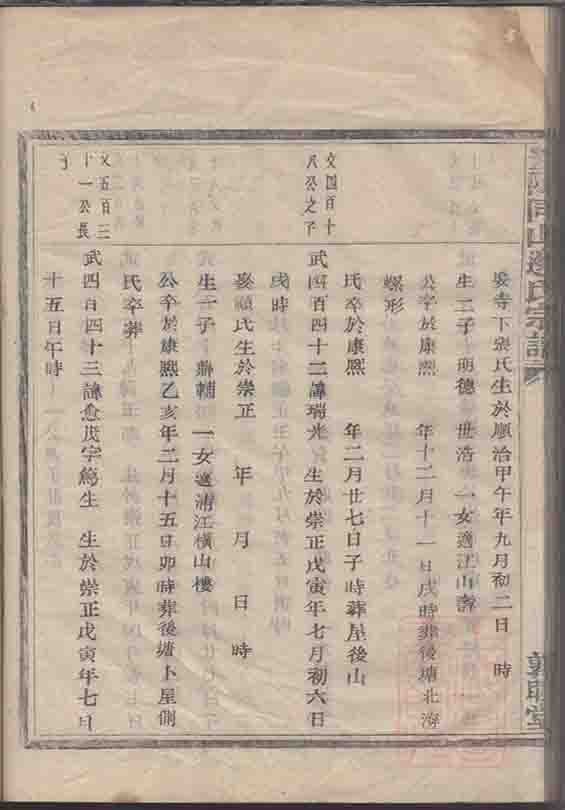 同山邊氏宗譜
娶寺下張氏生於順治甲午年九月初二日 時
生二子明德 世浩 一女適江山壽
公卒於康熙 年十二月十一日戌時葬後塘北海
螺形
氏卒於康熙 年二月廿七日子時葬屋後山
文四百十
八公之子
武四百四十二諱瑞光 生於崇正戊寅年七月初六日
戌時
娶顧氏生於崇正 年 月 日 時
生一子 輔 一女適浦江橫山樓
公卒於康熙乙亥年二月十五日卯時葬後塘卜屋側
氏卒葬
文五百三
十一公長
子
武四百四十三諱愈茂字篤生 生於崇正戊寅年七月
十五日午時